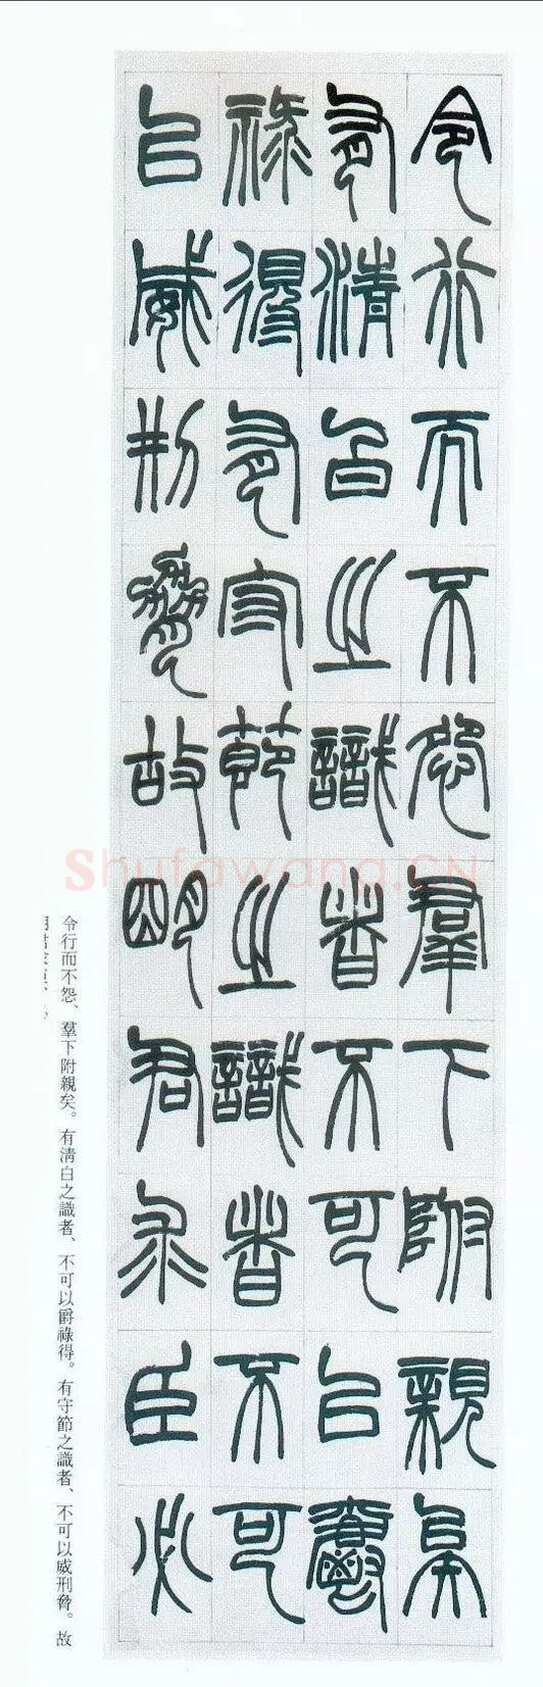 令行而不怨羣下附親矣
有清白之識者不可以爵
祿得有守節之識者不可
以威刑脅故明君求臣必
令行而不怨、羣下附親矣。有清白之識者、不可以爵祿得。有守節之識者、不可以威刑脅。故
Shufawang.CN